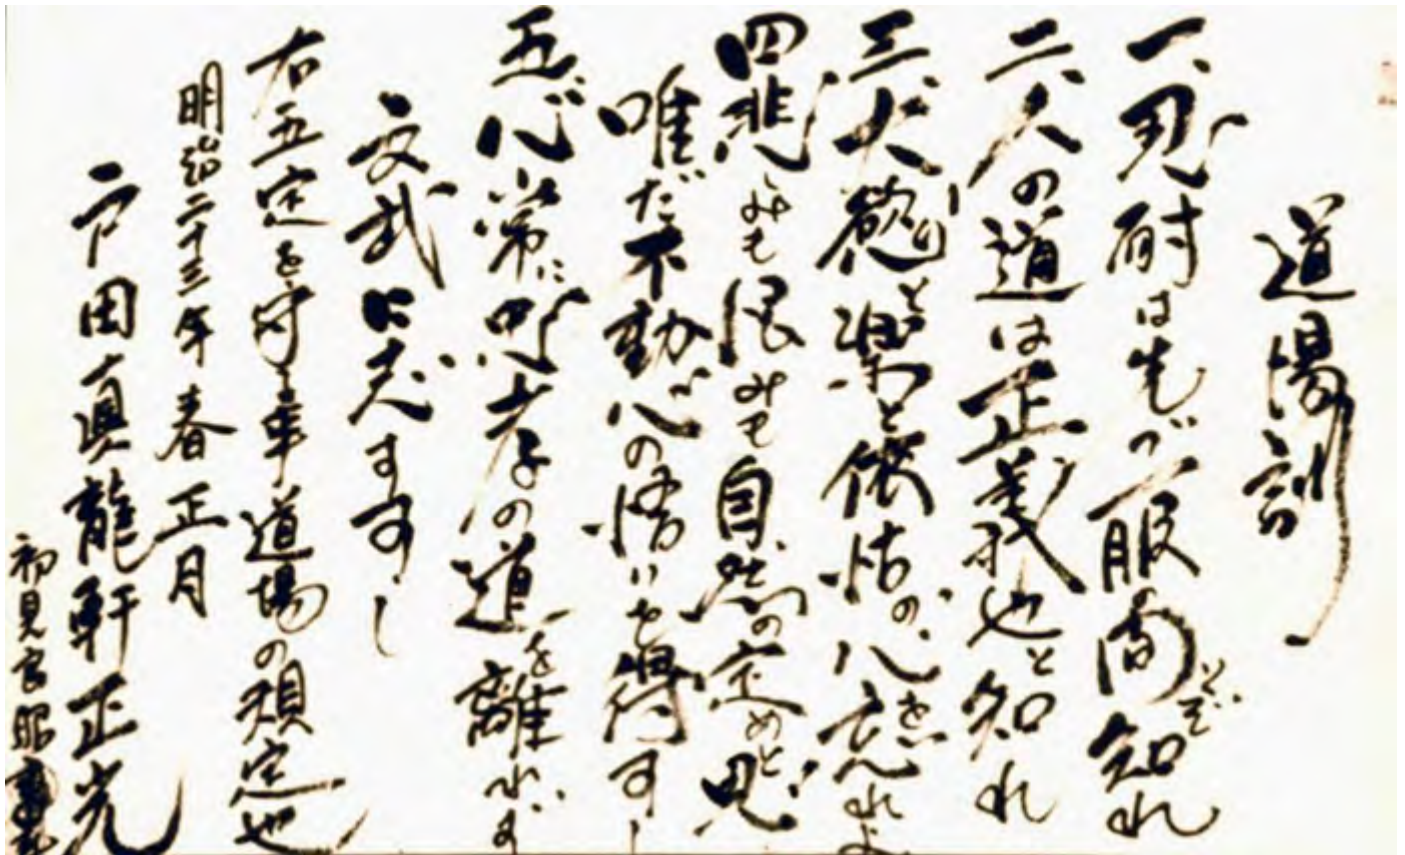 道場訓
一、忍耐は先づ一服の間とぞ知れ
二、人の道は正義也と知れ
三、大慾と楽と依怙の心を忘れよ
四、悲しみも恨みも自然の定めと思
唯だ不動心の悟りを得す
五、心常に忠孝の道を離れず
文武に志すす可し
右五定を守る事道場の規定也
明治二十三年春正月
戸田真龍軒正光
初見良昭